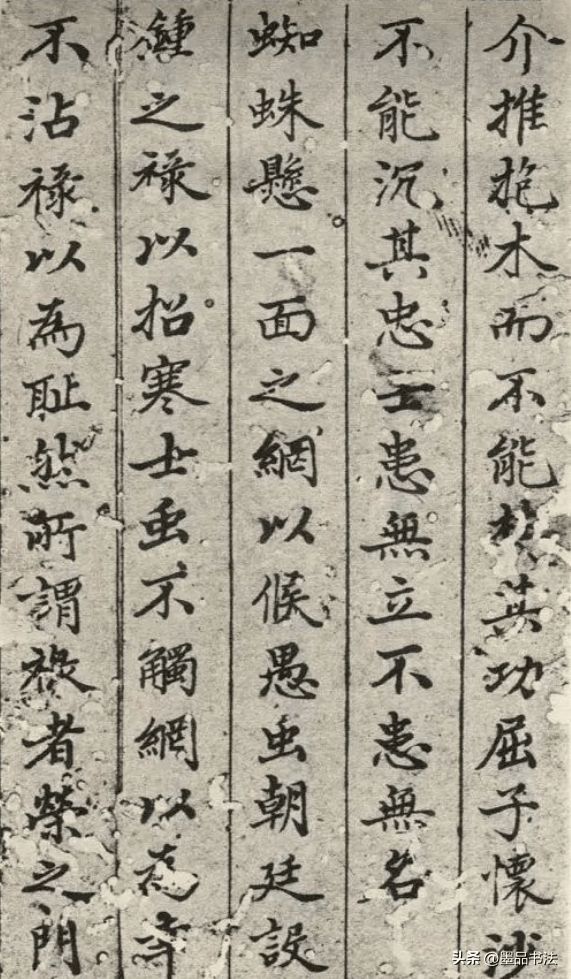 介推抱木而不能其功屈子懷沙
不能沉其忠士患無立不患無名
蜘蛛懸一面之網以候愚虫朝廷設
鍾之祿以招寒士虫不觸網以為幸
不沾祿以為耻然所謂祿者榮之門
头条 @墨品书法